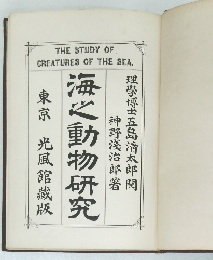 THE STUDY OF
CREATURES OF THE SEA.
理學博士五島清太郎閱
神野淺治郎著
海之動物研究
東京 光風館藏版